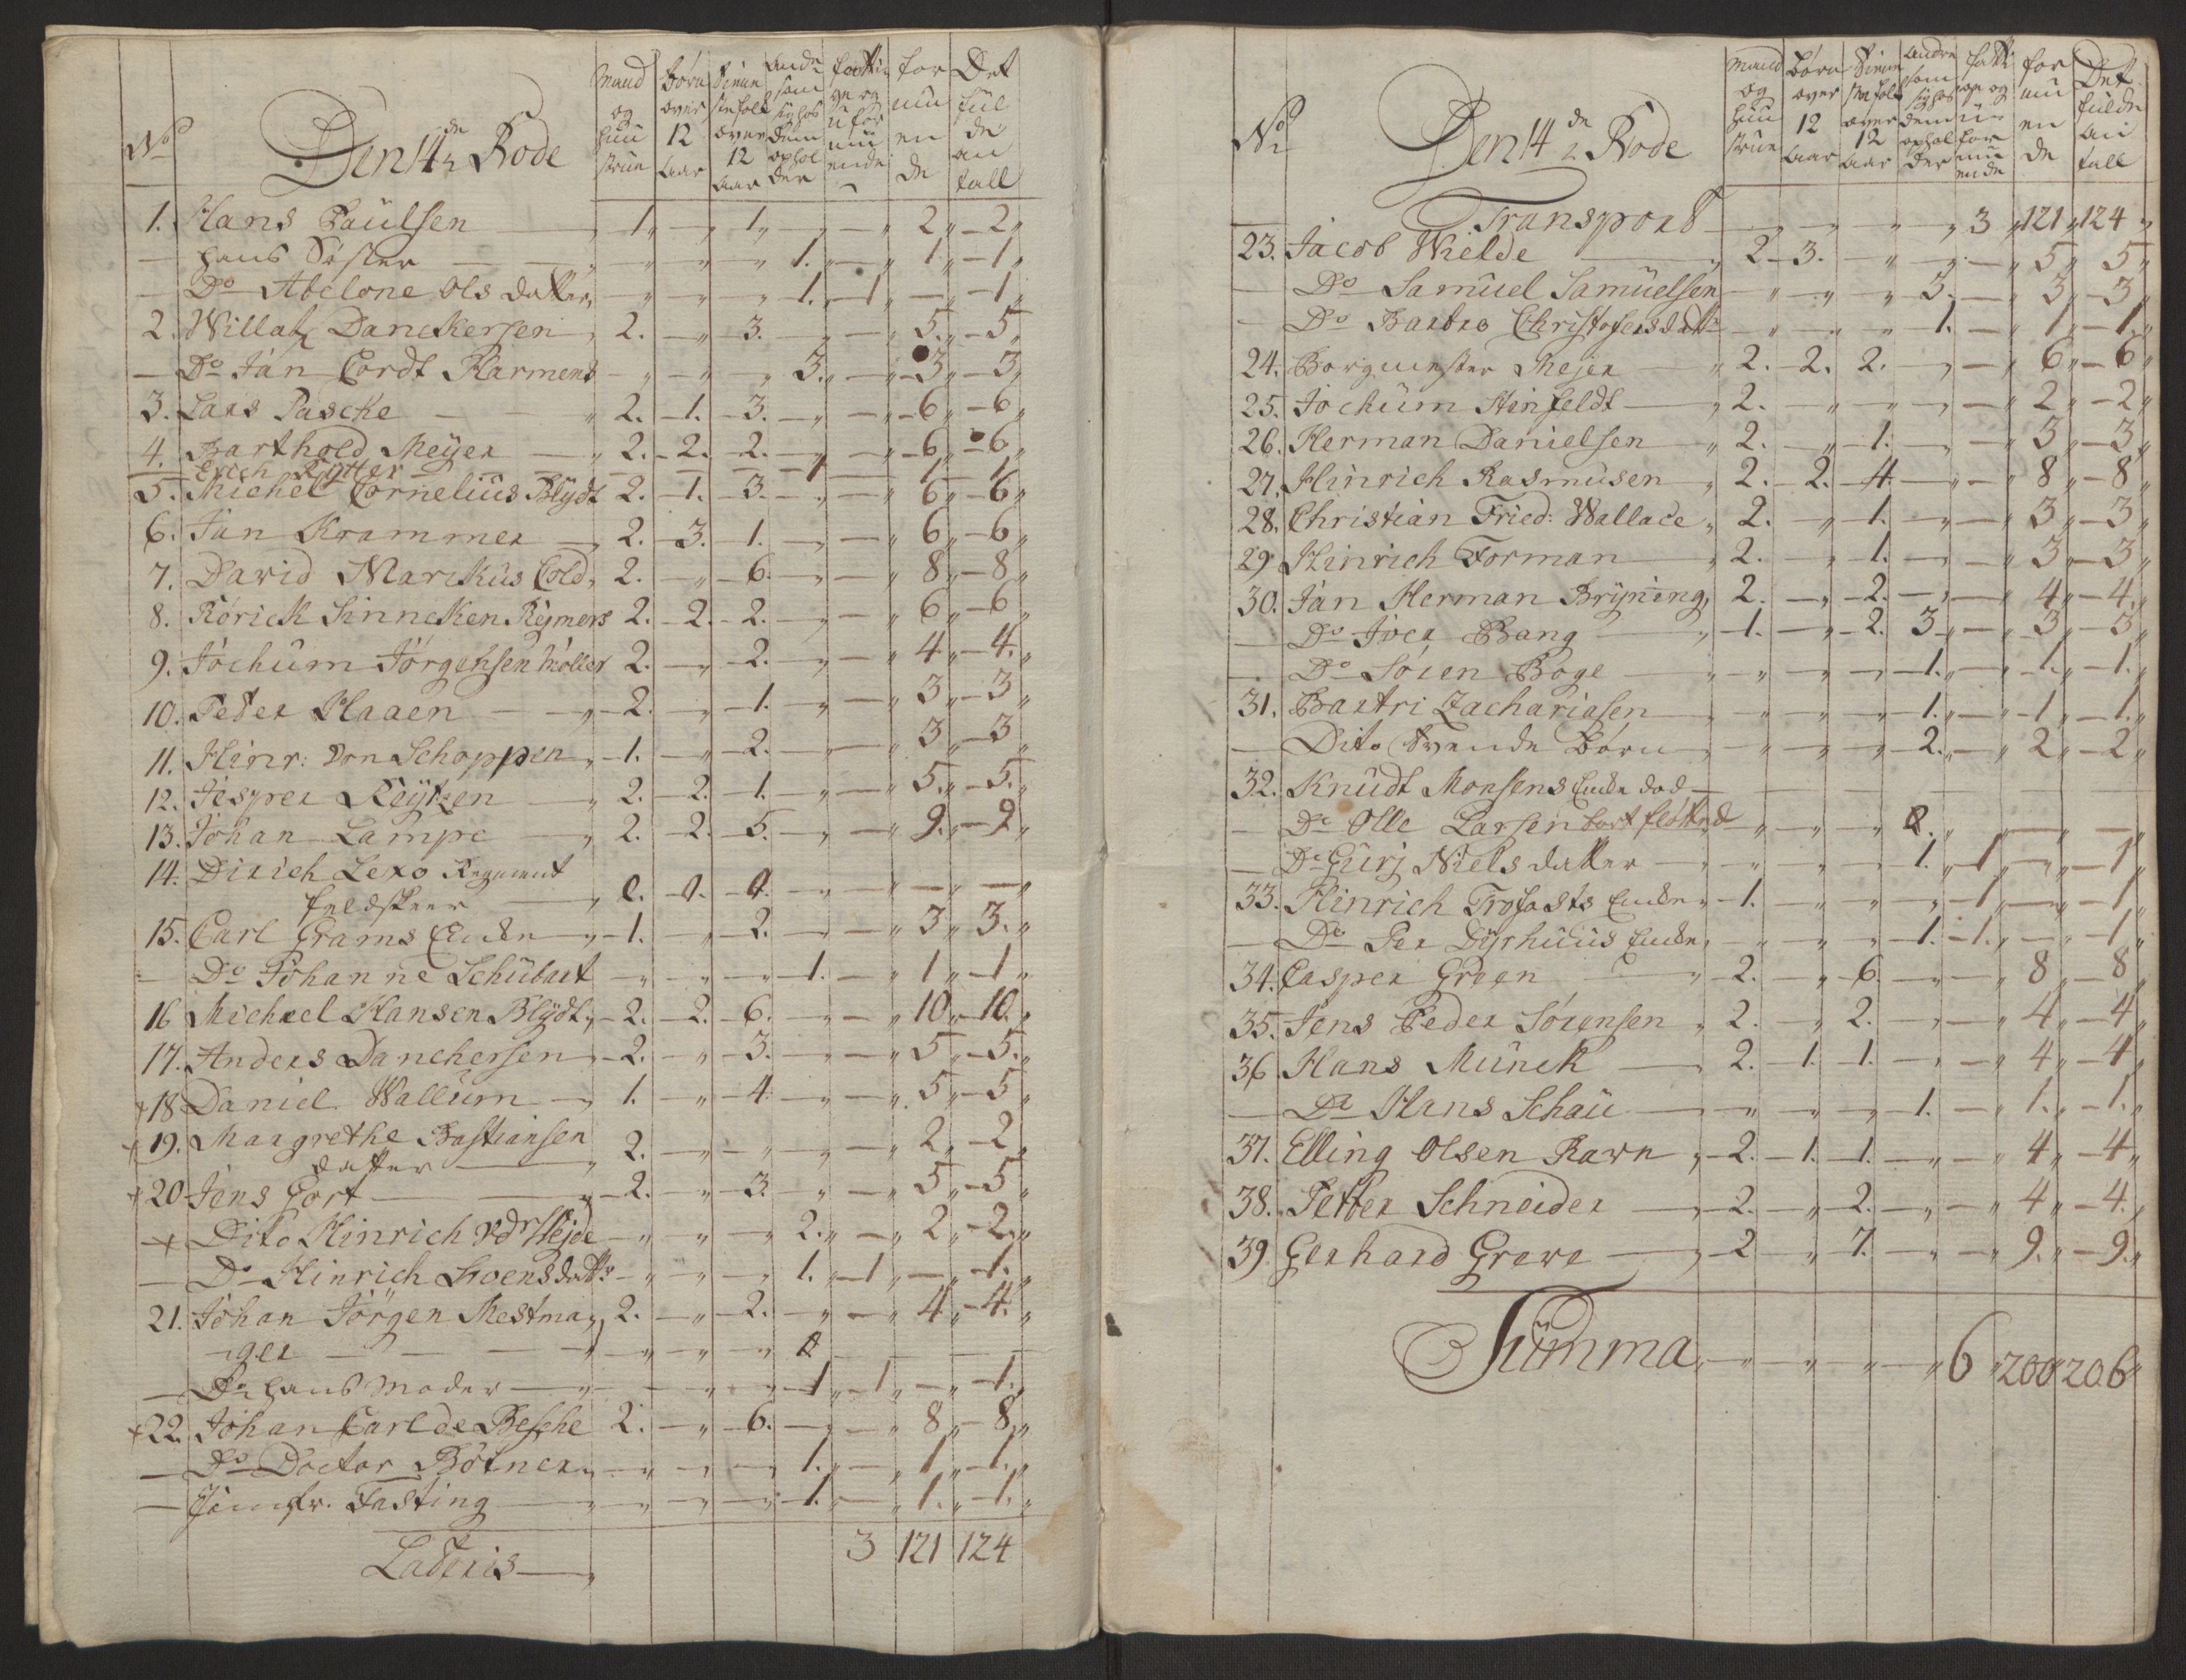 No
Den 14de Rode
Mand og Huustrue
Børn over 12 Aar
Tienestefolk over 12 Aar
Andre som sig hos dem opholder
fattige og uformuende
formuende
Det fulde antall
1. Hans Paulsen 1 " 1 " " 2 2
hans Søster " " " 1. " 1 1
Do Abelone Ols datter " " " 1. 1 " 1
2. Willatz Danckersen 2. " 3. " " 5. 5
Do Jan Cordt Harmens " " " 3. " 3 3
3. Lars Pascke 2. 1. 3. " " 6 6
4. Barthold Meÿer 2. 2. 2. " " 6 6
Erich Rÿtter 1 1 1
5. Michel Cornelius Blÿdt 2. 1. 3. " " 6 6
6. Jan Krammer 2. 3. 1. " " 6 6
7. David Marckus Cold 2. " 6. " " 8 8
8. Rörick Sinncken Reÿmers 2. 2. 2. " " 6 6
9. Jochum Jörgensen Möller 2. " 2. " " 4 4.
10. Peder Haaen 2. " 1. " " 3 3
11. Hinr: von Schoppen 1. " 2. " " 3 3
12. Jesper Reÿtzen 2. 2. 1. " " 5. 5.
13. Johan Lampe 2. 2. 5. " " 9. 9
14. Dirich Lexo Regiment
feldskeer 0. 0. 0. " " " "
15. Carl Grams Encke 1. " 2. " " 3 3.
Do Johanne Schübart " " " 1. " 1 1
16 Michael Hansen Blÿdt 2. 2. 6. " " 10 10.
17. Anders Danchersen 2. " 3. " " 5 5.
+18 Daniel Wallum 1. " 4. " " 5 5
+19. Margrethe Bastiansen
datter 2. " " " " 2 2
+20 Jens Gort 2. " 3. " " 5 5
+ Dito Hinrich vdr Heÿde " " " 2. " 2 2.
Do Hinrich Svensdattr " " " 1. 1 " 1.
21. Johan Jörgen Mestma 2. " 2. " " 4 4.
ger " " " 0
Do hans Moder " " " 1 1 " 1.
+22. Johan Carl de Besche 2. " 6. " " 8 8
Do Doctor Bötner " " " 1. " 1 1.
Jomfr. Fasting " " " 1. " 1. 1.
Lateris 3 121 124
No
Den 14de Rode
Mand og Huustrue
Børn over 12 Aar
Tienestefolk over 12 Aar
Andre som sig hos dem opholder
fattige og uformuende
formuende
Det fulde antall
Transport " " " " 3 121 124
23. Jacob Wielde 2 3. " " " 5 5
Do Samuel Samüelsen " " " 3. " 3 3
Do Bartro Christofersdatr " " " 1. " 1 1.
24. Borgmester Mejer 2. 2. 2. " " 6 6
25. Jochum Hinfeldt 2. " " " " 2 2
26. Herman Danielsen 2. " 1. " " 3 3
27. Hinrich Rasmusen 2. 2. 4. " " 8 8
28. Christian Fried: Wallace 2. " 1. " " 3 3
29 Hinrich Forman 2. " 1. " " 3 3
30. Jan Herman Brÿning 2. " 2. " " 4 4.
Do Joer Bang 1. " 2. 3 " 3 3
Do Sören Boge " " " 1. " 1. 1.
31. Bartri Zachariasen " " " 1. " 1 1.
Dito Svende Børn " " " 2. " 2 2
32. Knudt Monsens Encke død
Do Olle Larsen bort fløtted " " " 0. " " "
Do Gurj Niels datter " " " 1. 1 " 1
33. Hinrich Trofasts Encke 1. " " " 1 " 1
Do Per Dÿrhuus Encke " " " 1. 1. " 1
34. Casper Green 2. " 6. " " 8 8
35. Jens Peder Sörensen 2. " 2. " " 4 4
36 Hans Munck 2. 1. 1. " " 4 4
Do Hans Schau " " " 1. " 1. 1.
37. Elling Olsen Ravn 2. 1. 1. " " 4 4
38. Petter Schneider 2. " 2. " " 4 4.
39 Gerhard Greve 2 " 7. " " 9. 9.
Summa " " " " 6 200 206